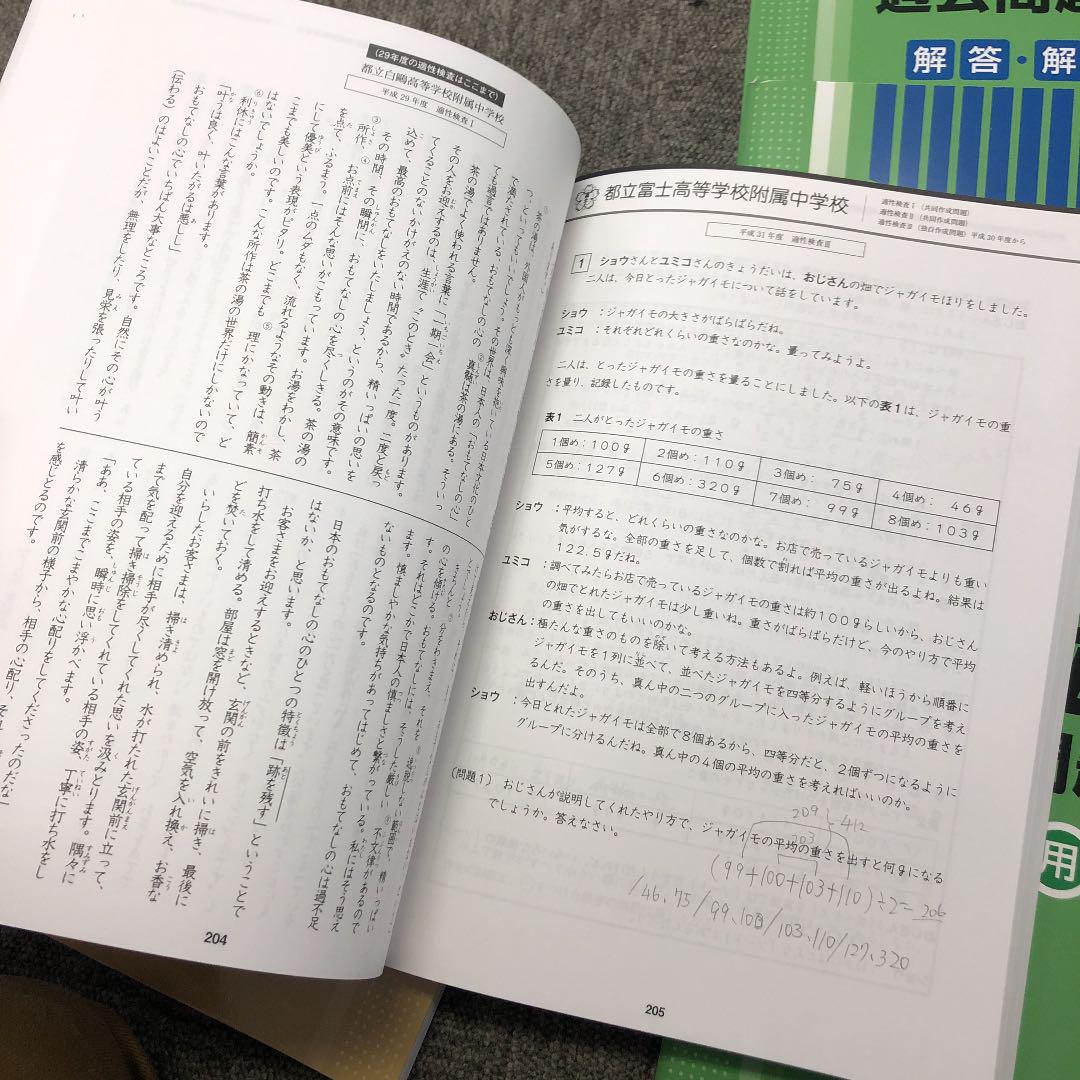 (29年度の適性検査はここまで)
都立白鷗高等学校附属中学校
平成29年度 適性検査Ⅰ
て満たされている、おもてなしの心の②真髄は茶の湯にある。そういっ
ても過言ではありません。
茶の湯でよく使われる言葉に「一期一会」というものがあります。
その人をお迎えするのは、生涯で“このとき”たった一度。二度と戻っ
てくることのないかけがえのない時間であるから、精いっぱいの思いを
込めて、最高のおもてなしをいたしましょう、というのがその意味です。
その時間、その瞬間に、おもてなしの心を尽くしきる。茶の湯の
③所作、④お点前にはそんな思いがこもっています。お湯をわかし、茶
を点て、ふるまう。一点のムダもなく、流れるようなその動きは、簡素
にして優美という表現がピタリ。どこまでも⑤理にかなっていて、ど
こまでも美しいのです。こんな所作は茶の湯の世界だけにしかないので
はないでしょうか。
⑥利休にはこんな言葉があります。
「叶うは良く、叶いたがるは悪し」
おもてなしの心でいちばん大事なところです。自然にその心が叶う
(伝わる)のはよいことだが、無理をしたり、見栄を張ったりして叶い
の心を傾ける。おもてなしには、そうした厳しい⑨不文律があるので
す。それはどこかで日本人の慎ましさと繫がっている。私にはそう思え
ます。慎ましやかな気持ちがあってはじめて、おもてなしの心は過不足
ないものとなるのです。
日本のおもてなしの心のひとつの特徴は「跡を残す」ということで
はないか、と思います。
お客さまをお迎えするときなど、玄関の前をきれいに掃き、最後に
打ち水をして清める。部屋は窓を開け放って、空気を入れ換え、お香な
どを焚いておく。
いらしたお客さまは、掃き清められ、水が打たれた玄関前に立って、
自分を迎えるために相手が尽くしてくれた思いを汲みとります。隅々に
まで気を配って掃き掃除をしてくれている相手の姿、丁寧に打ち水をし
ている相手の姿を、瞬時に思い浮かべます。
「ああ、ここまでこまやかな心配りをしてくださったのだな」
清らかな玄関前の様子から、相手の心配り、
を感じとるのです。
204
都立富士高等学校附属中学校
適性検査Ⅰ(共同作成問題)
適性検査Ⅱ(共同作成問題)
適性検査Ⅲ(独自作成問題)平成30年度から
平成31年度 適性検査Ⅲ
1 ショウさんとユミコさんのきょうだいは、おじさんの畑でジャガイモほりをしました。
二人は、今日とったジャガイモについて話をしています。
ショウ :ジャガイモの大きさがばらばらだね。
ユミコ :それぞれどれくらいの重さなのかな。量ってみようよ。
二人は、とったジャガイモの重さを量ることにしました。以下の表1は、ジャガイモの重
さを量り、記録したものです。
表1 二人がとったジャガイモの重さ
1個め:100g 2個め:110g 3個め: 75g 4個め: 46g
5個め:127g 6個め:320g 7個め: 99g 8個め:103g
ショウ :平均すると、どれくらいの重さなのかな。お店で売っているジャガイモよりも重い
気がするな。全部の重さを足して、個数で割れば平均の重さが出るよね。結果は
122.5gだね。
ユミコ :調べてみたらお店で売っているジャガイモの重さは約100gらしいから、おじさん
の畑でとれたジャガイモは少し重いね。重さがばらばらだけど、今のやり方で平均
の重さを出してもいいのかな。
おじさん:極たんな重さのものを除いて考える方法もあるよ。例えば、軽いほうから順番に
ジャガイモを1列に並べて、並べたジャガイモを四等分するようにグループを考え
るんだ。そのうち、真ん中の二つのグループに入ったジャガイモの平均の重さを
出すんだよ。
ショウ :今日とれたジャガイモは全部で8個あるから、四等分だと、2個ずつになるように
グループに分けるんだね。真ん中の4個の平均の重さを考えればいいのか。
(問題1) おじさんが説明してくれたやり方で、ジャガイモの平均の重さを出すと何gになる
でしょうか。答えなさい。
209
412
203
(99+100+103+110)÷2=206
/46、75/99、100/103、110/127、320
205
過去問題
解答・解
用